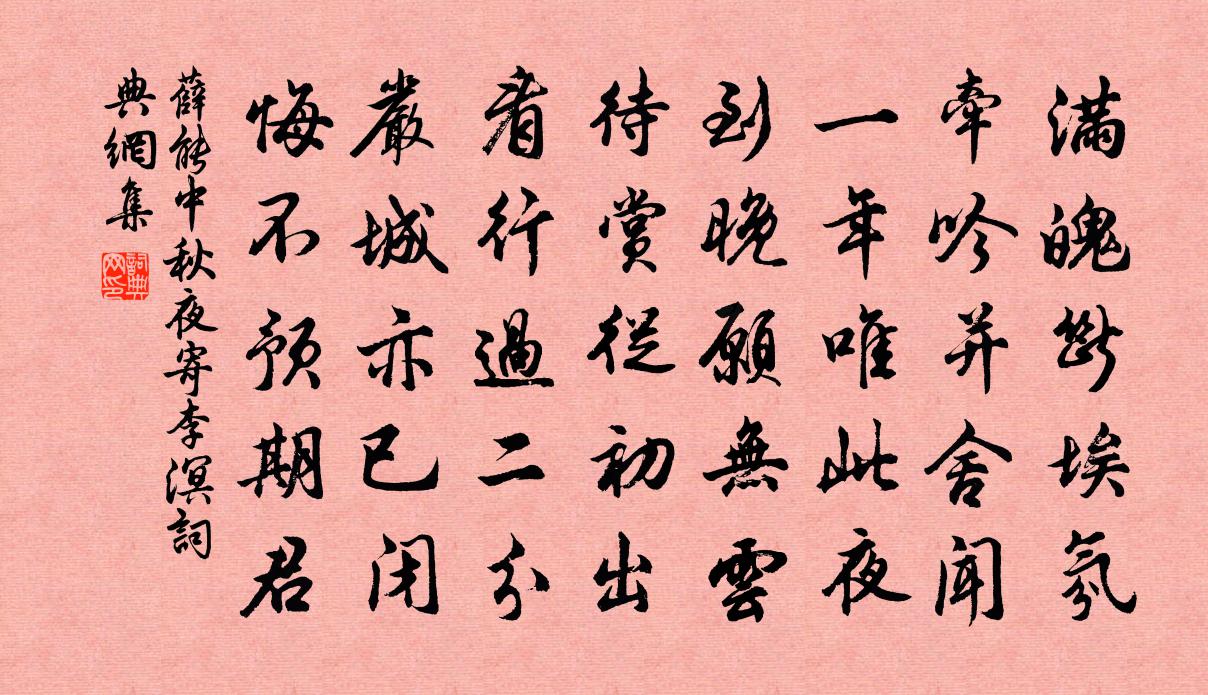 滿魄斷埃氛
牽吟并舍聞
一年唯此夜
到晚願無雲
待賞從初出
看行過二分
嚴城亦已閉
悔不預期君
薛能中秋夜寄李溟詞
典網集
詞典
网印